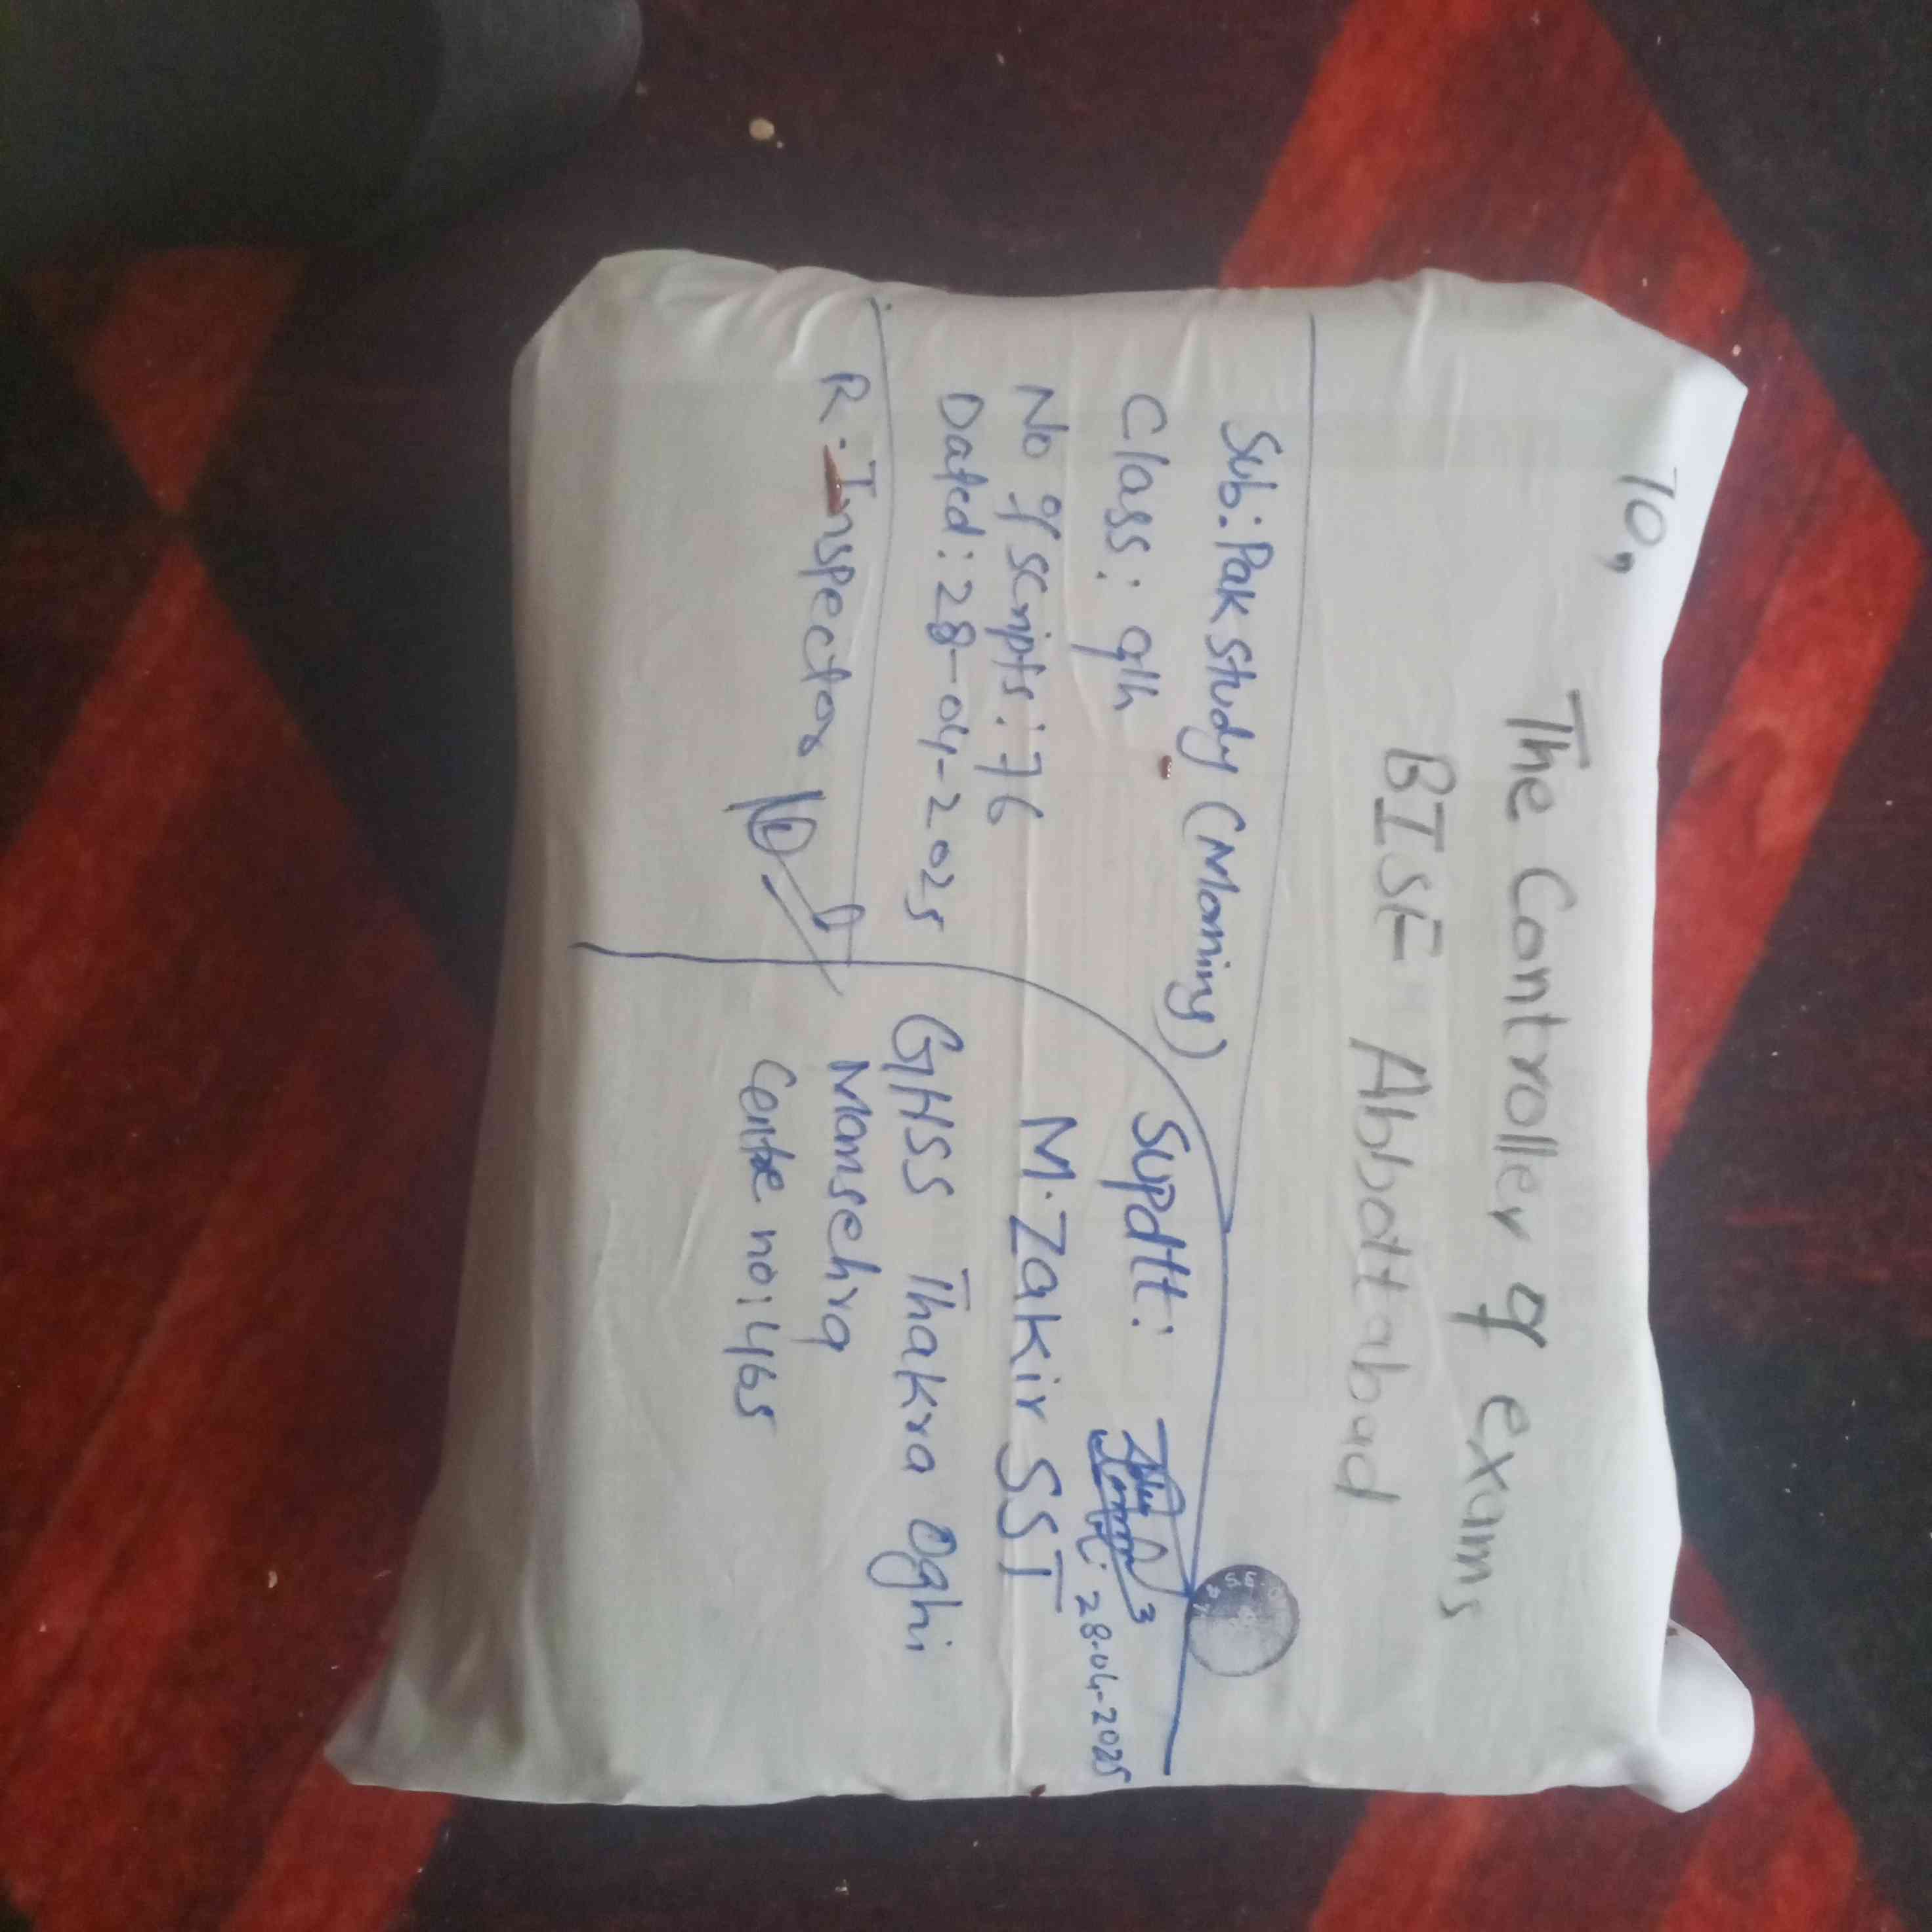 To,
The Controller of exams
BISE Abbottabad
Sub: Pak study (Morning)
Class: 9th
No of scripts: 76
Dated: 28-04-2025
R. Inspector
Supdtt:
28-04-2025
M. Zakir SST
GHSS Thakra Oghi
Mansehra
Centre no: 465